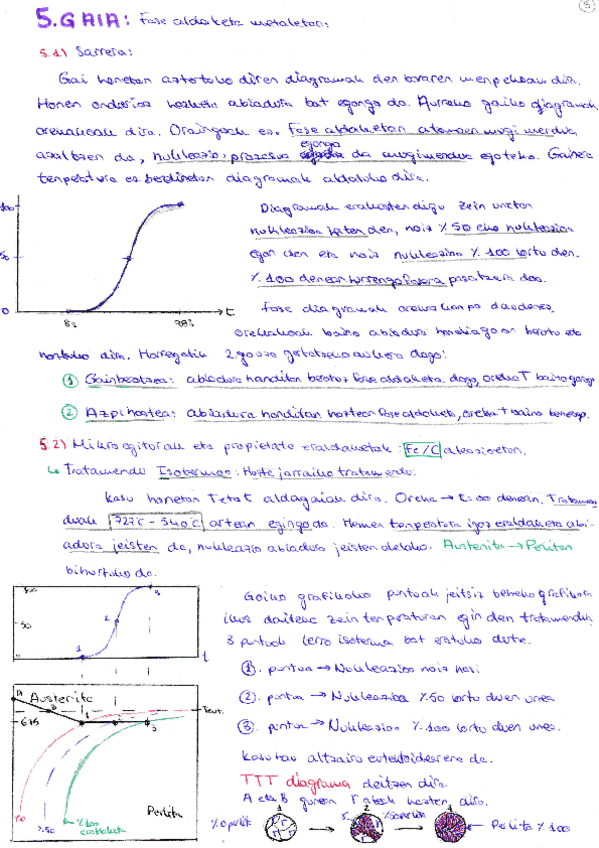 5
5.GAIA: Fase aldaketa metaletan:
5.1) Sarrera:
Gai honetan aztertuko diren diagramak denboraren menpekoak dira.
Honen ondorioz hozketa abiadura bat egongo da. Aurreko gaiko diagramak
orekakoak dira. Oraingoak ez. Fase aldaketan atomoen mugimendua
azaltzen da, nukleazio prozesua egongo da mugimendua egoteko. Gainera
tenperatura ez berdinetan diagramak aldatuko dira.
100
50
0
t
Diagramak erakusten digu zein unetan
nukleazioa hasten den, noiz % 50 eko nukleazioa
egon den eta noiz nukleazioa % 100 lortu den.
% 100 denean hurrengo fasera pasatzen da.
Fase diagramak orekakoak
orekakoak baino abiadura handiagoan berotu edo
hoztuko dira. Horregatik 2 gauza gertatzeko aukera dago:
1 Gainberotzea: abiadura handian berotuz fase aldaketa dago, oreka T baino gorago
2 Azpihoztea: abiadura handian hoztean fase aldaketa, oreka T baino beherago.
5.2) Mikroegiturak eta propietate eraldaketak Fe/C aleazioetan.
Tratamendu Isotermoa: Hozte jarraiko tratamendu.
Kasu honetan T eta t aldagaiak dira. Oreka → t=∞ denean. Tratamen
duak 727°C - 540°C artean egingo da. Hemen tenperatura igoz eraldaketa abi-
adura jeisten da, nukleazio abiadura jeisten delako. Austenita → Perlitan
bihurtuko da.
100
50
1
2
3
t
Goiko grafikoko puntuak jeitsiz beheko grafikora
ikus daiteke zein tenperaturan egin den tratamendua
3 puntuak lerro isotermo bat eratuko dute.
1. puntua → Nukleazioa noiz hasi
2. puntua → Nukleazioa %50 lortu duen unea
3. puntua → Nukleazioa % 100 lortu duen unea.
Kasu hau altzairu eutektoidearena da.
TTT diagrama deitzen dira.
A eta B
A
Austenita
B
Teut.
675
1
3
Perlita
%0
%50
%100
%0 perlit
%50 perlit
Perlita % 100